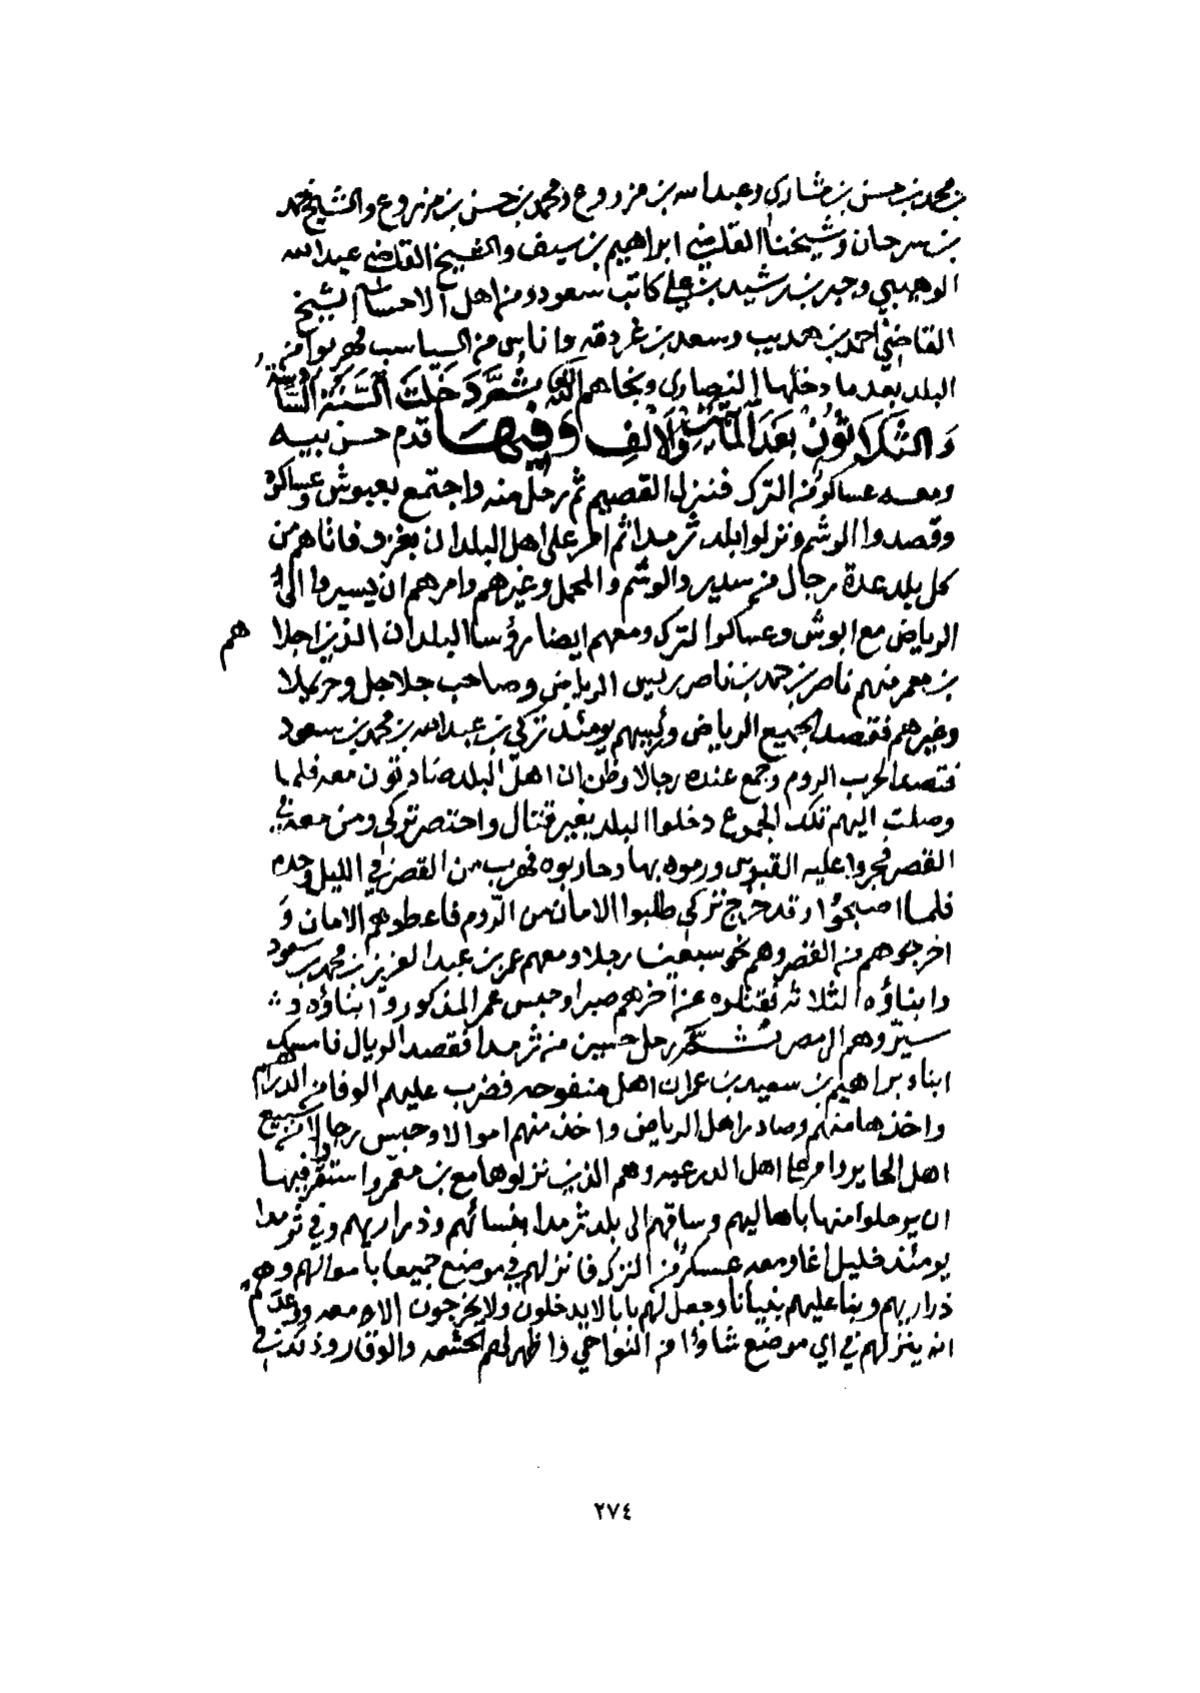 بن محمد بن حسن بن مشاري وعبدالله بن مزروع ومحمد بن حسن بن مزروع والشيخ محمد
بن سرحان وشيخنا القاضي ابراهيم بن سيف والشيخ القاضي عبدالله
الوهيبي وحمد بن رشيد بن علي كاتب سعود ومن اهل الاحسا الشيخ
القاضي احمد بن هديب وسعد بن غردقه واناس من السياسب فهربوا من
البلد بعد ما دخلها النصارى ونجاهم الله ثم دخلت السنة السادسة
والثلاثون بعد المائتين والالف وفيها قدم حسن بيه
ومعه عساكر من الترك فنزل القصيم ثم رحل منه واجتمع بعبوش وعساكره
وقصدوا الوشم ونزلوا بلد ثرمدا ثم امر على اهل البلدان بغزو فاتاهم من
كل بلد عدة رجال من سدير والوشم والمحمل وغيرهم وامرهم ان يسيروا الى
الرياض مع ابوش وعساكر الترك ومعهم ايضا رؤسا البلدان الذين اجلاهم
بن معمر منهم ناصر بن حمد بن ناصر رييس الرياض وصاحب جلاجل وحريملا
وغيرهم فقصد الجميع الرياض وريسهم يومئذ تركي بن عبدالله بن محمد بن سعود
فتصدا لحرب الروم وجمع عنده رجالا وظن ان اهل البلد صادقون معه فلما
وصلت اليهم تلك الجموع دخلوا البلد بغير قتال واحتصر تركي ومن معه في
القصر فجروا عليه القبوس ورموه بها وحاربوه فهرب من القصر في الليل وحده
فلما اصبحوا وقد خرج تركي طلبوا الامان من الروم فاعطوهم الامان و
اخرجوهم من القصر وهم نحو سبعين رجلا ومعهم عمر بن عبدالعزيز بن محمد بن سعود
وابناؤه الثلاثه فقتلوه عن اخرهم صبرا وحبس عمر المذكور وابناؤه و
سيروهم الى مصر ثم رحل حسين من ثرمدا فقصد الرياض فامسك
ابناء براهيم بن سعيد بن عمران اهل منفوحه فضرب عليهم الوفا من الدراهم
واخذها منهم وصادر اهل الرياض واخذ منهم اموالا وحبس رجالا من سبيع
اهل الحاير وامر على اهل الدرعيه وهم الذين نزلوها مع بن معمر واستقر فيها
ان يرحلوا منها باهاليهم وساقهم الى بلد ثرمدا بنسائهم وذراريهم وفي ثرمدا
يومئذ خليل اغا ومعه عسكر من الترك فانزلهم في موضع جميعا باموالهم وهم
ذراريهم وبنا عليهم بنيانا وجعل لهم بابا لا يدخلون ولا يخرجون الا معه ووعدهم
انه ينزلهم في اي موضع شاؤا من النواحي واظهر لهم الحشمه والوقار وذكر في
٢٧٤